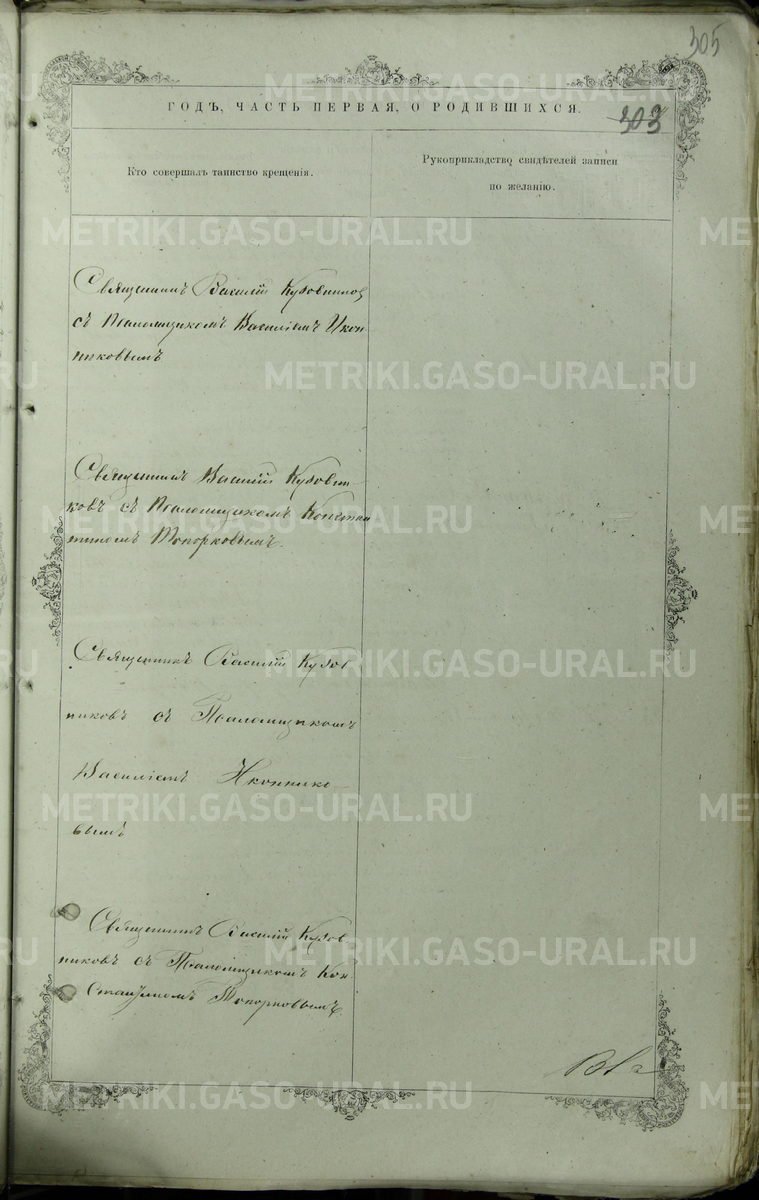 305
ГОДЪ, ЧАСТЬ ПЕРВАЯ, О РОДИВШИХСЯ.
303
Кто совершалъ таинство крещенія.
Рукоприкладство свидѣтелей записи
по желанію.
Священникъ Василій Кузовников
съ Псаломщикомъ Василіемъ Икон
никовымъ
Священникъ Василій Кузовни
ковъ съ Псаломщикомъ Констан
тиномъ Топорковымъ.
Священникъ Василій Кузов
никовъ съ Псаломщикомъ
Василіемъ Иконнико
вымъ
Священникъ Василій Кузов
никовъ съ Псаломщикомъ Кон
стантиномъ Топорковымъ.
METRIKI.GASO-URAL.RU